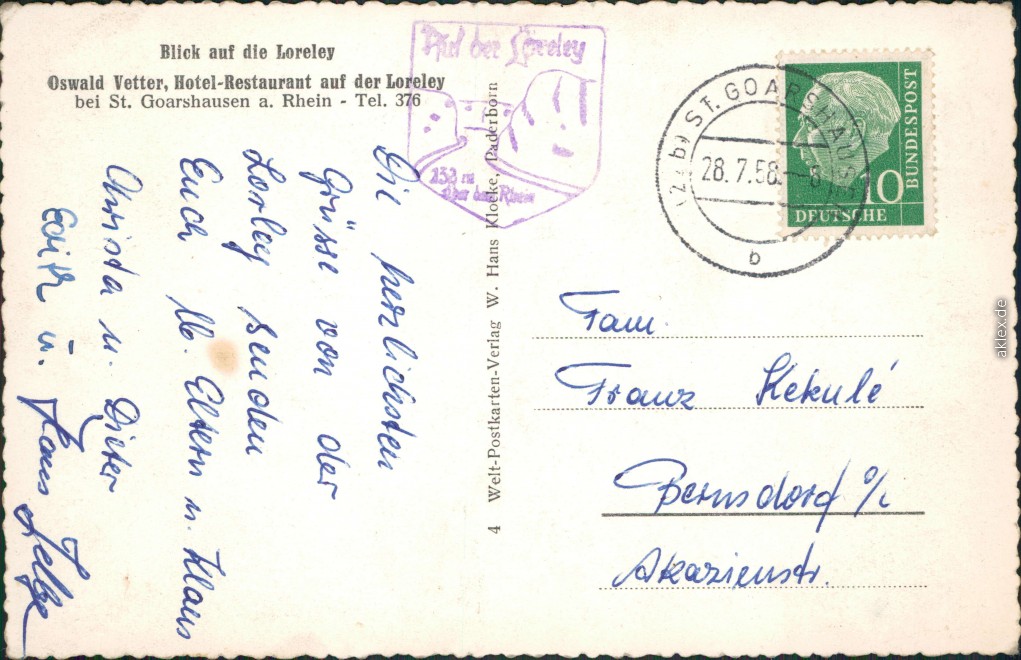 Blick auf die Loreley
Oswald Vetter, Hotel-Restaurant auf der Loreley
bei St. Goarshausen a. Rhein - Tel. 376
Auf der Loreley
132 m
über dem Rhein
Die herzlichsten
Grüsse von der
Lorley senden
Euch lb. Eltern u. Klaus
Christa u. Dieter
Edith u. Hans
4 Welt-Postkarten-Verlag W. Hans Klocke, Paderborn
(22b) ST. GOARSHAUSEN
28.7.58.-8
b
10
DEUTSCHE
BUNDESPOST
Fam.
Franz Kekulé
Bernsdorf o/L
Akazienstr.
aklex.de